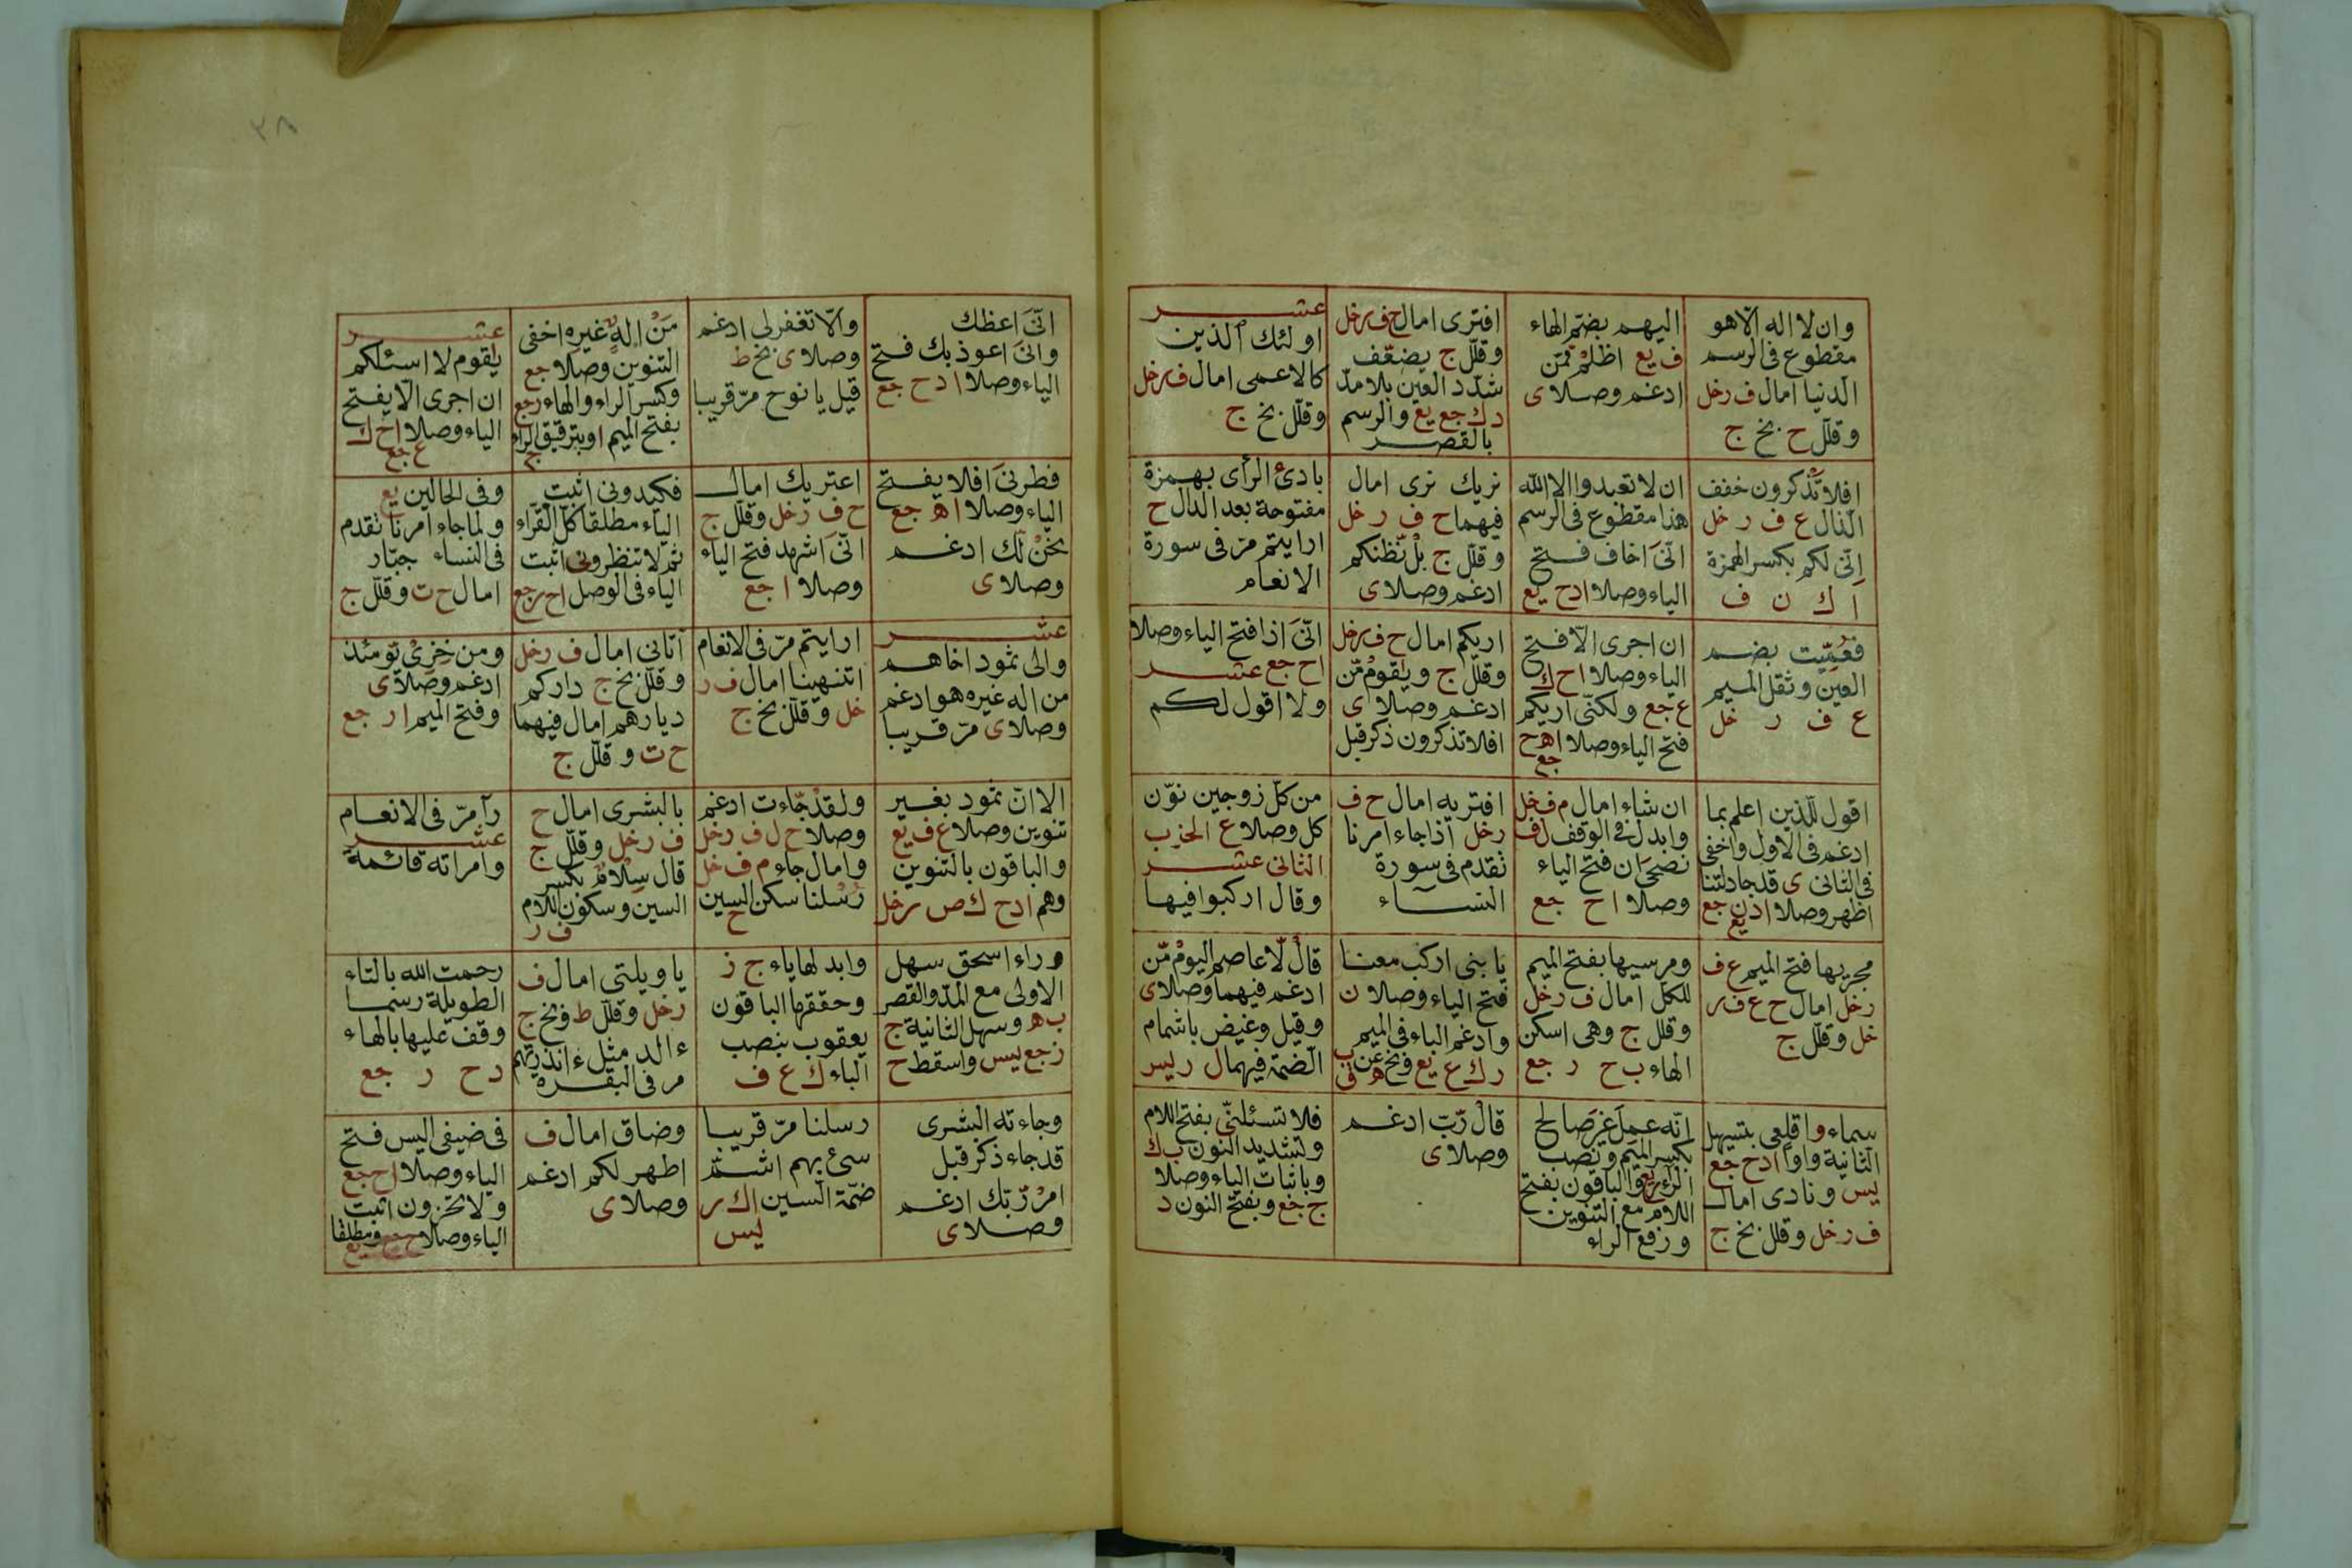 وان لا اله الا هو
مقطوع فى الرسم
الدنيا امال ف ر خل
وقلل ح بخ ج
اليهم بضم الهاء
ف يع اظلم ممن
ادغم وصلا ى
افترى امال ح ف ر خل
وقلل ج يضعف
شدد العين بلا مد
د ك جع يع والرسم
بالقصر
عشر
اولئك الذين
كالاعمى امال ف ر خل
وقلل بخ ج
افلا تذكرون خفف
الذال ع ف ر خل
انى لكم بكسر الهمزة
ا ك ن ف
ان لا تعبدوا الا الله
هذا مقطوع فى الرسم
انى اخاف فتح
الياء وصلا ادح يع
نريك نرى امال
فيهما ح ف ر خل
وقلل ج بل نظنكم
ادغم وصلا ى
بادئ الرأى بهمزة
مفتوحة بعد الدال ح
ارايتم مر فى سورة
الانعام
فعميت بضم
العين وثقل الميم
ع ف ر خل
ان اجرى الا فتح
الياء وصلا اح ك
ع جع ولكنى اريكم
فتح الياء وصلا اهح
جع
اريكم امال ح ف ر خل
وقلل ج ويقوم من
ادغم وصلا ى
افلا تذكرون ذكر قبل
انى اذا فتح الياء وصلا
اح جع عشر
ولا اقول لكم
اقول للذين اعلم بما
ادغم فى الاول واخفى
فى الثانى ى قد جادلتنا
اظهر وصلا ادن جع
يع
ان شاء امال م ف خل
وابدل فى الوقف ل ف
نصحى ان فتح الياء
وصلا اح جع
افتريه امال ح ف
ر خل اذا جاء امرنا
تقدم فى سورة
النساء
من كل زوجين نون
كل وصلا ع الحزب
الثانى عشر
وقال اركبوا فيها
مجريها فتح الميم ع ف
ر خل امال ح ع ف ر
خل وقلل ج
ومرسيها بفتح الميم
للكل امال ف ر خل
وقلل ج وهى اسكن
الهاء ب ح ر جع
يا بنى اركب معنا
فتح الياء وصلا ن
وادغم الباء فى الميم
ر ك ع يع وبخ عن ب
ه ق
قال لا عاصم اليوم من
ادغم فيهما وصلا ى
وقيل وغيض باشمام
الضمة فيهما ل ر ليس
سماء واقلعى بتسهيل
الثانية واوا ادح جع
يس ونادى امال
ف ر خل وقلل بخ ج
انه عمل غير صالح
بكسر الميم ونصب
الراء ر يع والباقون بفتح
اللام مع التنوين
ورفع الراء
قال رب ادغم
وصلا ى
فلا تسئلنى بفتح اللام
وتشديد النون ب ك
وباثبات الياء وصلا
ج جع وبفتح النون د
٣٨
انى اعظك
وانى اعوذ بك فتح
الياء وصلا ا د ح جع
والا تغفر لى ادغم
وصلا ى بخ ط
قيل يا نوح مر قريبا
من اله غيره اخفى
التنوين وصلا جع
وكسر الراء والهاء ر جع
بفتح الميم او بترقيق الراء
ج
عشر
يقوم لا اسئلكم
ان اجرى الا بفتح
الياء وصلا اح ك
ع جع
فطرنى افلا بفتح
الياء وصلا اه جع
نحن لك ادغم
وصلا ى
اعتريك امال
ح ف ر خل وقلل ج
انى اشهد فتح الياء
وصلا ا جع
فكيدونى اثبت
الياء مطلقا كل القراء
ثم لا تنظرونى اثبت
الياء فى الوصل اح ر جع
وفى الحالين يع
ولما جاء امرنا تقدم
فى النساء جبار
امال ح ت وقلل ج
عشر
والى ثمود اخاهم
من اله غيره هو ادغم
وصلا ى مر قريبا
ارايتم مر فى الانعام
اتنهينا امال ف ر
خل وقلل بخ ج
آتانى امال ف ر خل
وقلل بخ ج داركم
ديارهم امال فيهما
ح ت وقلل ج
ومن خزى يومئذ
ادغم وصلا ى
وفتح الميم ا ر جع
الا ان ثمود بغير
تنوين وصلا ع ف يع
والباقون بالتنوين
وهم ادح ك ص ر خل
ولقد جاءت ادغم
وصلا ح ل ف ر خل
وامال جاء م ف خل
رسلنا سكن السين
ح
بالبشرى امال ح
ف ر خل وقلل ج
قال سلام بكسر
السين وسكون اللام
ف ر
رآ مر فى الانعام
عشر
وامراته قائمة
وراء اسحق سهل
الاولى مع المد والقصر
ب ه وسهل الثانية ج
ز جع يس واسقط ح
وابدلها ياء ج ز
وحققها الباقون
يعقوب بنصب
الباء ك ع ف
يا ويلتى امال ف
ر خل وقلل ط وبخ ج
ءالد مثل ءانذرتهم
مر فى البقرة
رحمت الله بالتاء
الطويلة رسما
وقف عليها بالهاء
د ح ر جع
وجاءته البشرى
قد جاء ذكر قبل
امر ربك ادغم
وصلا ى
رسلنا مر قريبا
سئ بهم اشم
ضمة السين ا ك ر
يس
وضاق امال ف
اطهر لكم ادغم
وصلا ى
فى ضيفى اليس فتح
الياء وصلا اح جع
ولا تخزون اثبت
الياء وصلا ح جع ومطلقا
يع